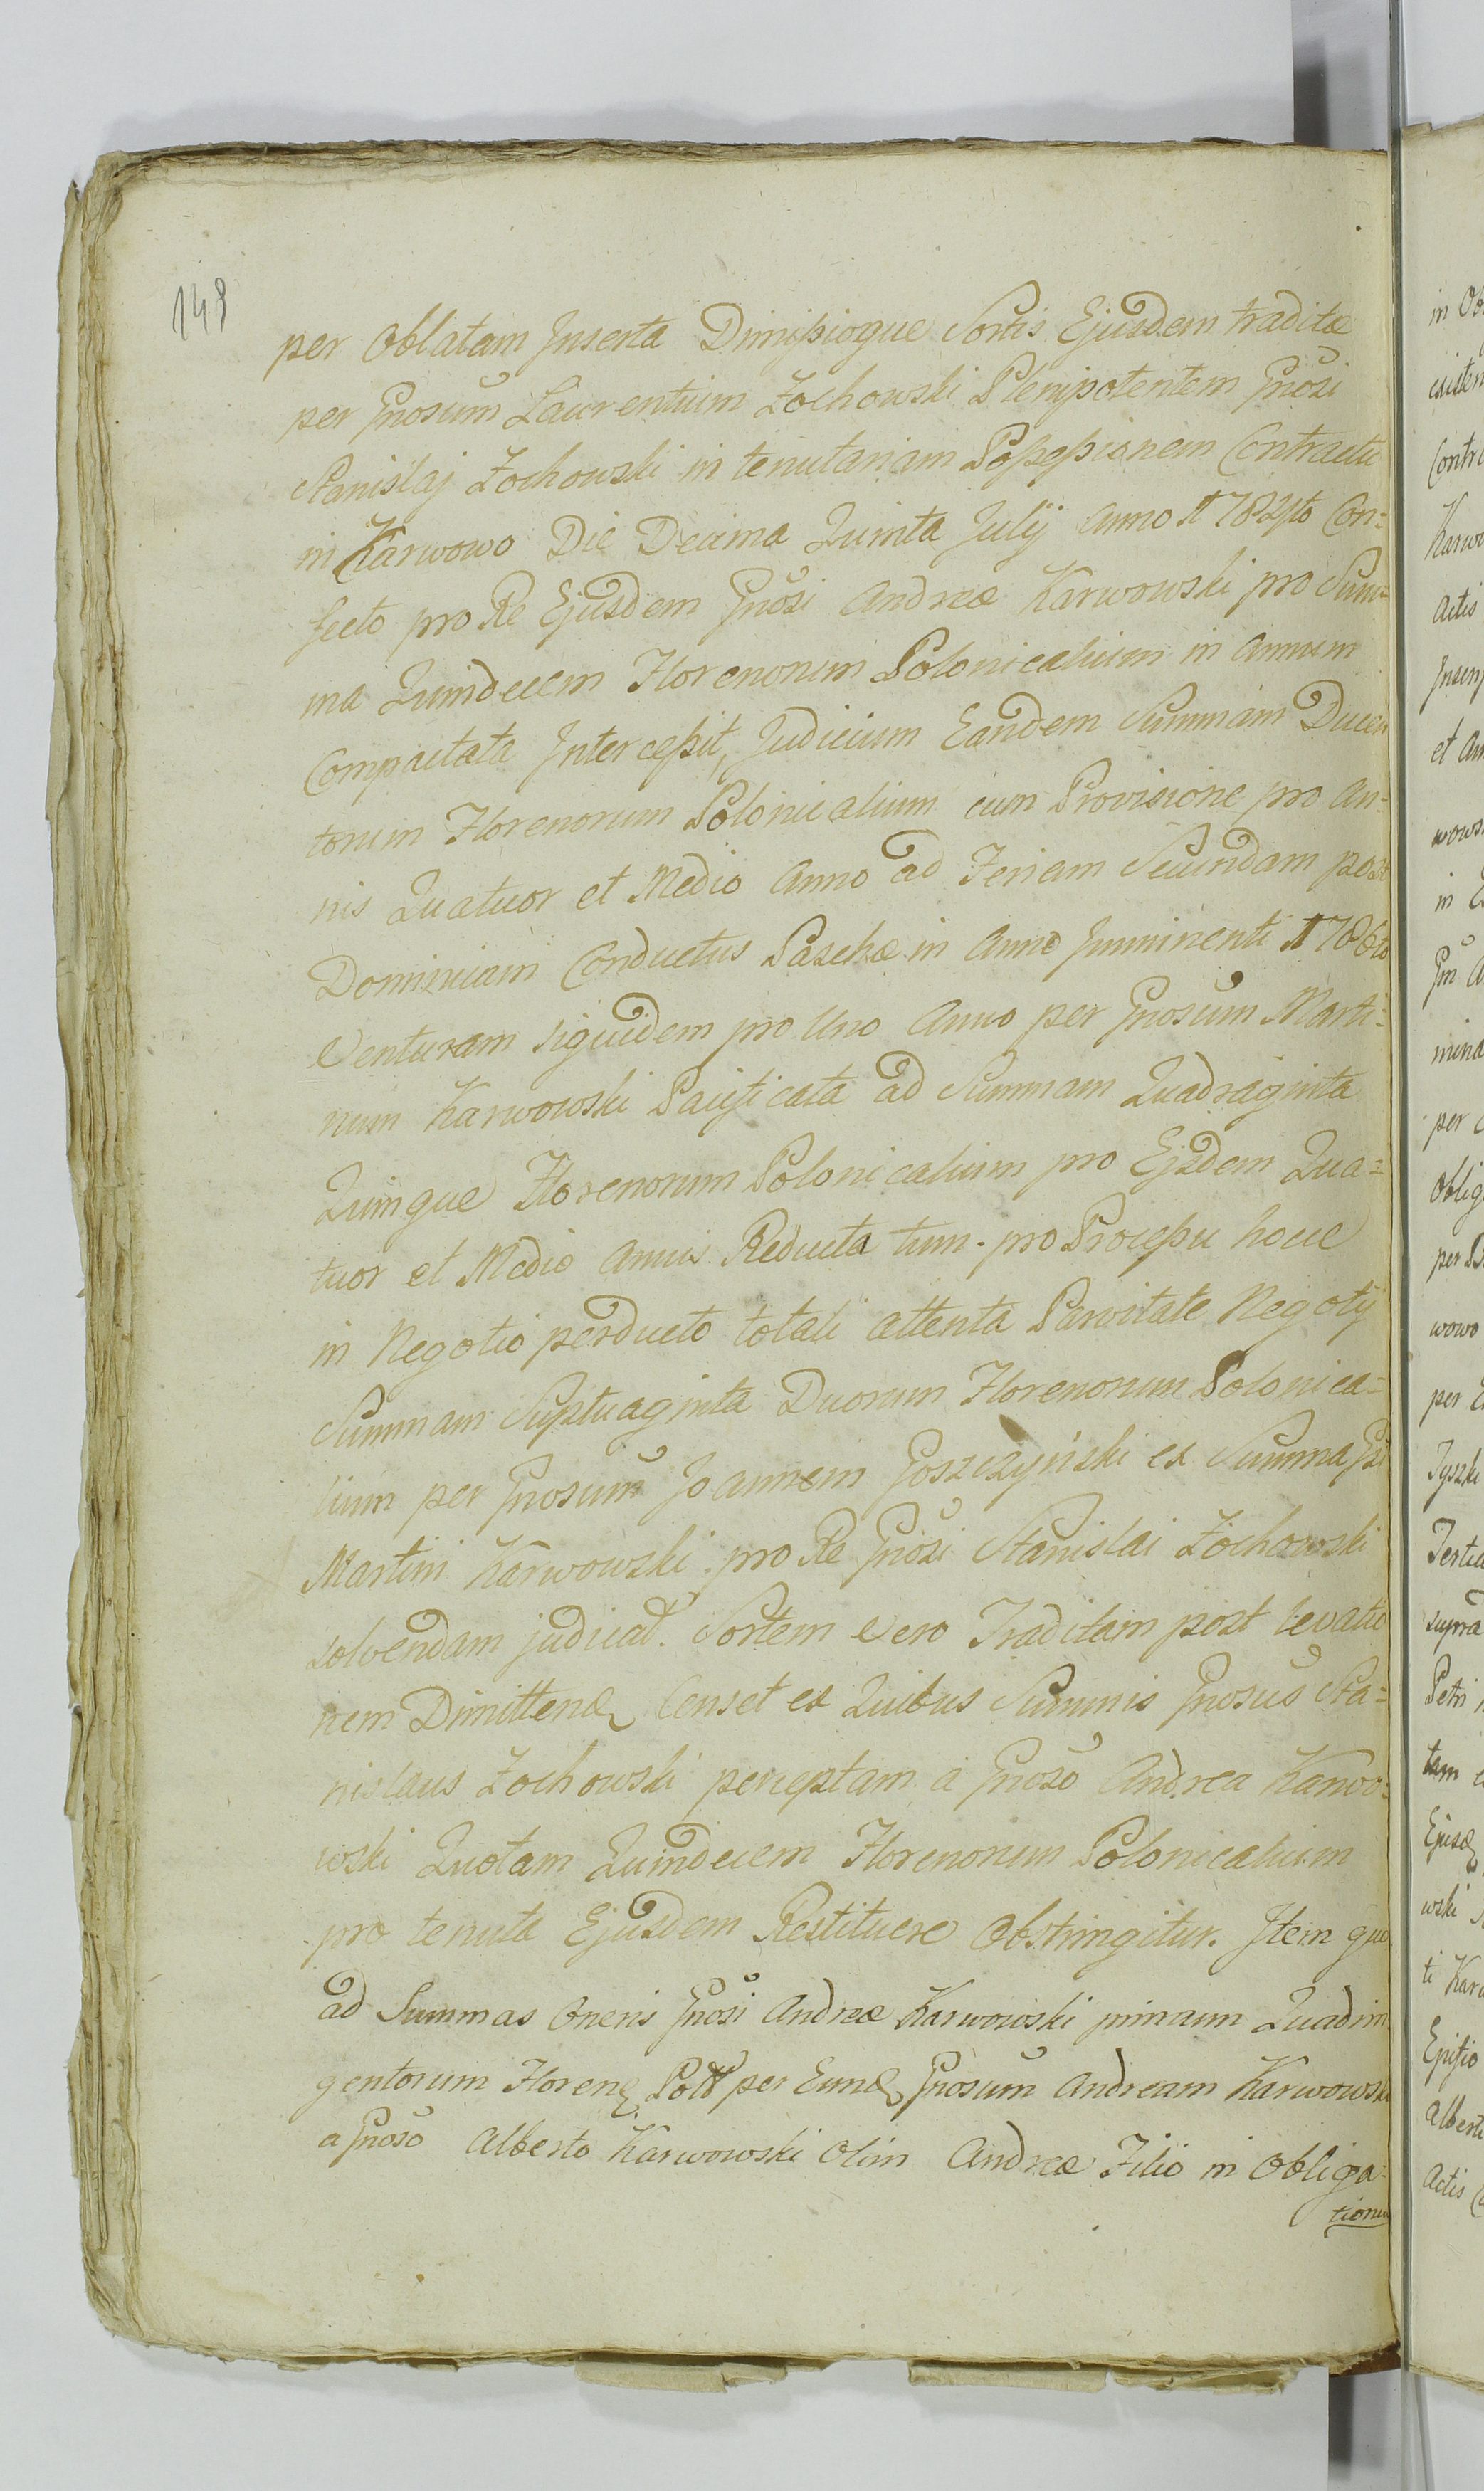 148
per Oblatam Inserta Dimissioque Sortis Ejusdem traditæ
per Gnosum Laurentium Zochowski Plenipotentem Gnosi
Stanislaj Zochowski in tenutariam Possessionem Contractu
in Karwowo Die Decima Quinta Julij Anno 1782do Con=
fecto pro Re Ejusdem Gnosi Andreæ Karwowski pro Sum=
ma Quindecem Florenorum Polonicalium in Annum
Compactata Intercessit, Judicium Eandem Summam Ducen
torum Florenorum Polonicalium cum Provisione pro An=
nis Quatuor et Medio Anno ad Feriam Secundam post
Dominicam Conductus Paschæ in Anno Imminenti 1786to
Venturam siquidem pro Uno Anno per Gnosum Marti=
num Karwowski Pacificata ad Summam Quadraginta
Quinque Florenorum Polonicalium pro Ejsdem Qua=
tuor et Medio Annis Reducta tum pro Processu hocce
in Negotio perducto totali attenta Parvitate Negotij
Summam Septuaginta Duorum Florenorum Polonica=
lium per Gnosum Joannem Goszczyński ex Summa Gsi
Martini Karwowski pro Re Gnosi Stanislai Zochowski
solvendam judicat. Sortem Vero Traditam post levatio
nem Dimittend Censet ex Quibus Summis Gnosus Sta=
nislaus Zochowski perceptam a Gnoso Andrea Karwo=
wski Quotam Quindecem Florenorum Polonicalium
pro tenuta Ejusdem Restituere Obstringitur. Item quo
ad Summas Oneris Gnosi Andreæ Karwowski primum Quadrin
gentorum Floren Poll per Eund Gnosum Andream Karwowski
a Gnoso Alberto Karwowski Olim Andreæ Filio in Obliga=
tionem
in
Contr
Karw
Actis
et
wows
in
per
Oblig
per
wowo
per
supra
Petri
tam
wski
ti
Alberti
Actis